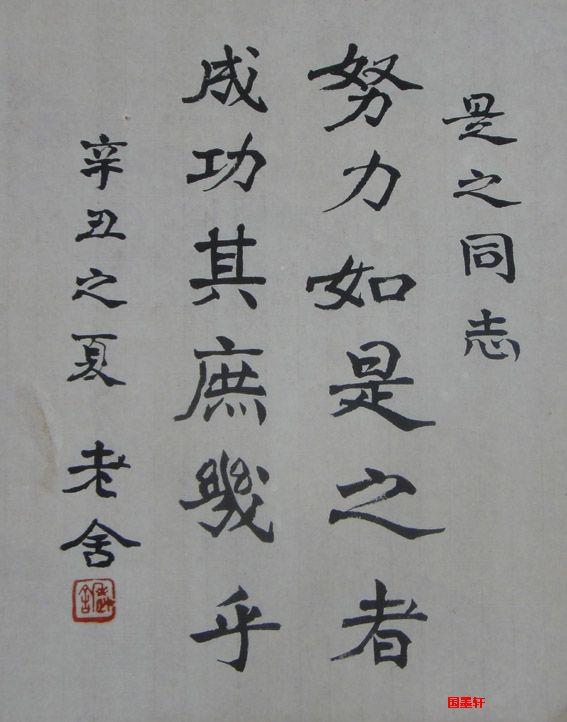 是之同志
努力如是之者
成功其庶幾乎
辛丑之夏 老舍
老舍
国墨轩